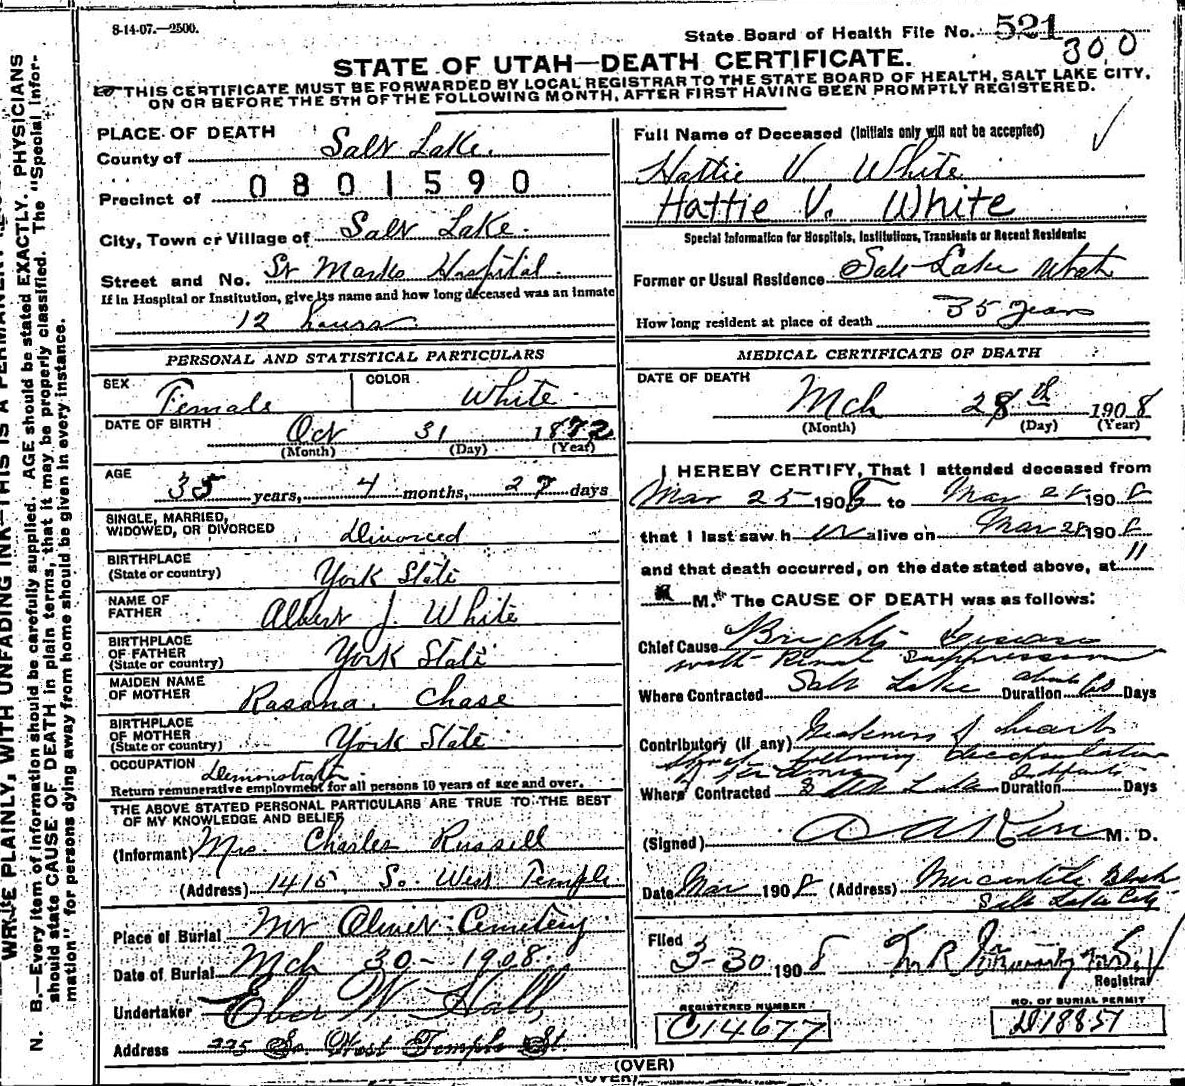 8-14-07.—2500.
State Board of Health File No. 521
300
STATE OF UTAH—DEATH CERTIFICATE.
THIS CERTIFICATE MUST BE FORWARDED BY LOCAL REGISTRAR TO THE STATE BOARD OF HEALTH, SALT LAKE CITY,
ON OR BEFORE THE 5TH OF THE FOLLOWING MONTH, AFTER FIRST HAVING BEEN PROMPTLY REGISTERED.
PLACE OF DEATH
County of Salt Lake.
Precinct of 0801590
City, Town or Village of Salt Lake.
Street and No. St Marks Hospital.
If in Hospital or Institution, give its name and how long deceased was an inmate
12 hours
PERSONAL AND STATISTICAL PARTICULARS
SEX Female COLOR White
DATE OF BIRTH Oct 31 1872
(Month) (Day) (Year)
AGE 35 years, 4 months, 27 days
SINGLE, MARRIED,
WIDOWED, OR DIVORCED Divorced
BIRTHPLACE
(State or country) York State
NAME OF
FATHER Albert J. White
BIRTHPLACE
OF FATHER
(State or country) York State
MAIDEN NAME
OF MOTHER Rasana. Chase
BIRTHPLACE
OF MOTHER
(State or country) York State
OCCUPATION
Return remunerative employment for all persons 10 years of age and over.
THE ABOVE STATED PERSONAL PARTICULARS ARE TRUE TO THE BEST
OF MY KNOWLEDGE AND BELIEF
(Informant) Mrs. Charles Russell
(Address) 1415 So. West Temple
Place of Burial Mt Olivet Cemetery
Date of Burial Mch 30 - 1908.
Undertaker Eber W Hall,
Address 225 So. West Temple St.
Full Name of Deceased (Initials only will not be accepted)
Hattie V. White
Hattie V. White
Special Information for Hospitals, Institutions, Transients or Recent Residents:
Former or Usual Residence Salt Lake Utah
How long resident at place of death 35 years
MEDICAL CERTIFICATE OF DEATH
DATE OF DEATH
Mch 28th 1908
(Month) (Day) (Year)
I HEREBY CERTIFY, That I attended deceased from
Mar 25 1908 to Mar 28 1908
that I last saw her alive on Mar 28 1908
and that death occurred, on the date stated above, at 11
M. The CAUSE OF DEATH was as follows:
Chief Cause Brights Disease
with Renal Suppression
Where Contracted Salt Lake Duration about 60 Days
Contributory (if any) Weakness of heart
following decapsulation
of kidneys
Where Contracted Salt Lake Duration Days
(Signed) M. D.
Date Mar 1908 (Address) Mercantile Block
Salt Lake City
Filed 3-30 1908
Registrar
REGISTERED NUMBER
C14677
NO. OF BURIAL PERMIT
D18851
(OVER)
(OVER)
N. B.—Every item of information should be carefully supplied. AGE should be stated EXACTLY. PHYSICIANS
should state CAUSE OF DEATH in plain terms, that it may be properly classified. The "Special Infor-
mation" for persons dying away from home should be given in every instance.
WRITE PLAINLY, WITH UNFADING INK—THIS IS A PERMANENT